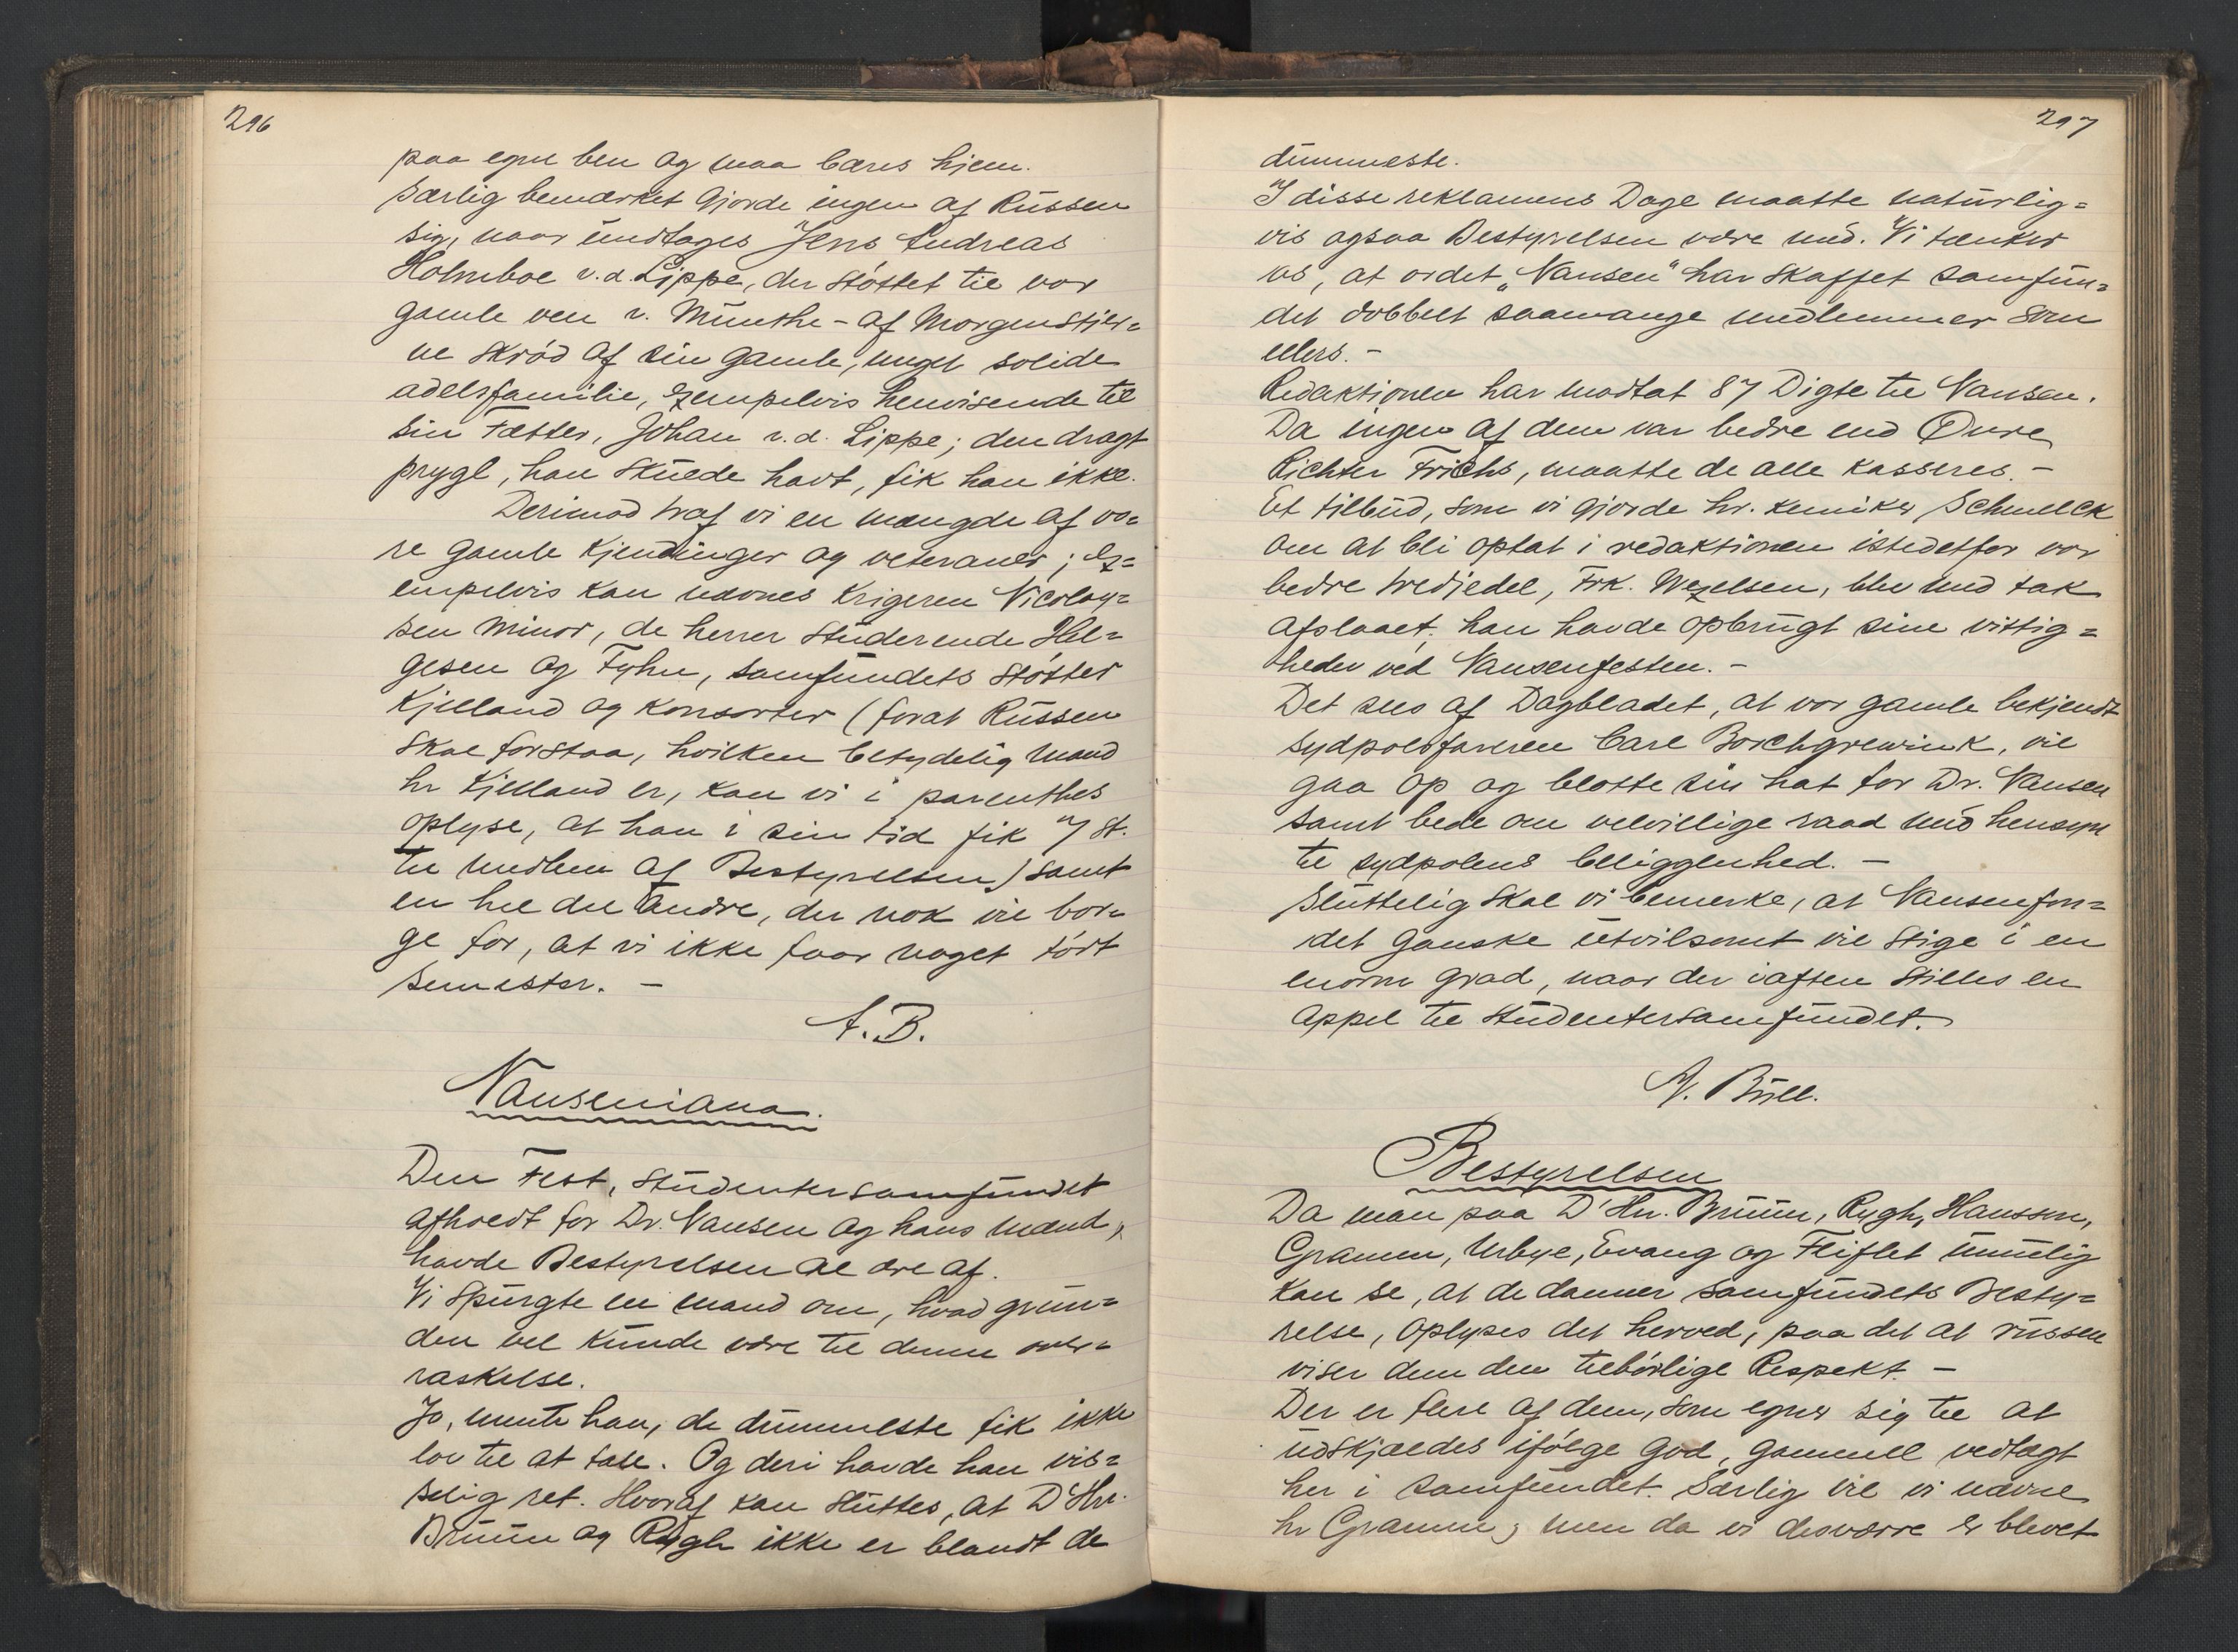 296
paa egne ben og maa bæres hjem.
Særlig bemærket gjorde ingen af Russen
sig, naar undtages Jens Andreas
Holmboe v.d. Lippe, der støttet til vor
gamle ven v. Munthe - af Morgenstier=
ne skrød af sin gamle, meget solide
adelsfamilie, exempelvis henvisende til
sin Fætter, Johan v.d. Lippe; den dragt
prygl, han skulde havt, fik han ikke.
Derimod traf vi en mængde af vo=
re gamle kjendinger og veteraner; ex=
empelvis kan nævnes krigeren Nicolay=
sen minor, de herrer studerende Hel=
gesen og Fyhn, samfundets støtter
Kjelland og konsorter (forat Russen
skal forstaa, hvilken betydelig mand
hr Kjelland er, kan vi i parenthes
oplyse, at han i sin tid fik 7 st.
til medlem af Bestyrelsen) samt
en hel del andre, der nok vil bor=
ge for, at vi ikke faar noget tørt
semester. -
A.B.
Nanseniana.
Den Fest, Studentersamfundet
afholdt for Dr. Nansen og hans mænd,
havde Bestyrelsen al ære af.
Vi spurgte en mand om, hvad grun=
den vel kunde være til denne over=
raskelse.
Jo, mente han, de dummeste fik ikke
lov til at tale. Og deri havde han vis=
selig ret. Hvoraf kan sluttes, at D'Hrr.
Bruun og Rygh ikke er blandt de
297
dummeste.
I disse reklamens Dage maatte naturlig=
vis ogsaa Bestyrelsen være med. Vi tænker
os, at ordet „Nansen" har skaffet samfun=
det dobbelt saamange medlemmer som
ellers. -
Redaktionen har modtat 87 Digte til Nansen.
Da ingen af dem var bedre end Ovre
Richter Frichs, maatte de alle kasseres. -
Et tilbud, som vi gjorde hr. kemiker Schmelck
om at bli optat i redaktionen istedetfor vor
bedre tredjedel, Frk. Wexelsen, blev med tak
afslaaet. han havde opbrugt sine vittig=
heder ved Nansenfesten. -
Det sees af Dagbladet, at vor gamle bekjendt
sydpolsfareren Carl Borchgrevink, vil
gaa op og blotte sin hat for Dr. Nansen
samt bede om velvillige raad med hensyn
til sydpolens beliggenhed. -
Sluttelig skal vi bemerke, at Nansenfon=
det ganske utvilsomt vil stige i en
enorm grad, naar der iaften stilles en
appel til Studentersamfundet.
A. Bull.
Bestyrelsen
Da man paa D'Hrr. Bruun, Rygh, Hanssen,
Gramm, Urbye, Evang og Fliflet umulig
kan se, at de danner samfundets Besty=
relse, oplyses det herved, paa det at russen
viser dem den tilbørlige Respekt. -
Der er flere af dem, som egner sig til at
udskjældes ifølge god, gammel vedtægt
her i samfundet. Særlig vil vi nævne
hr Gramm; men da vi desværre er blevet